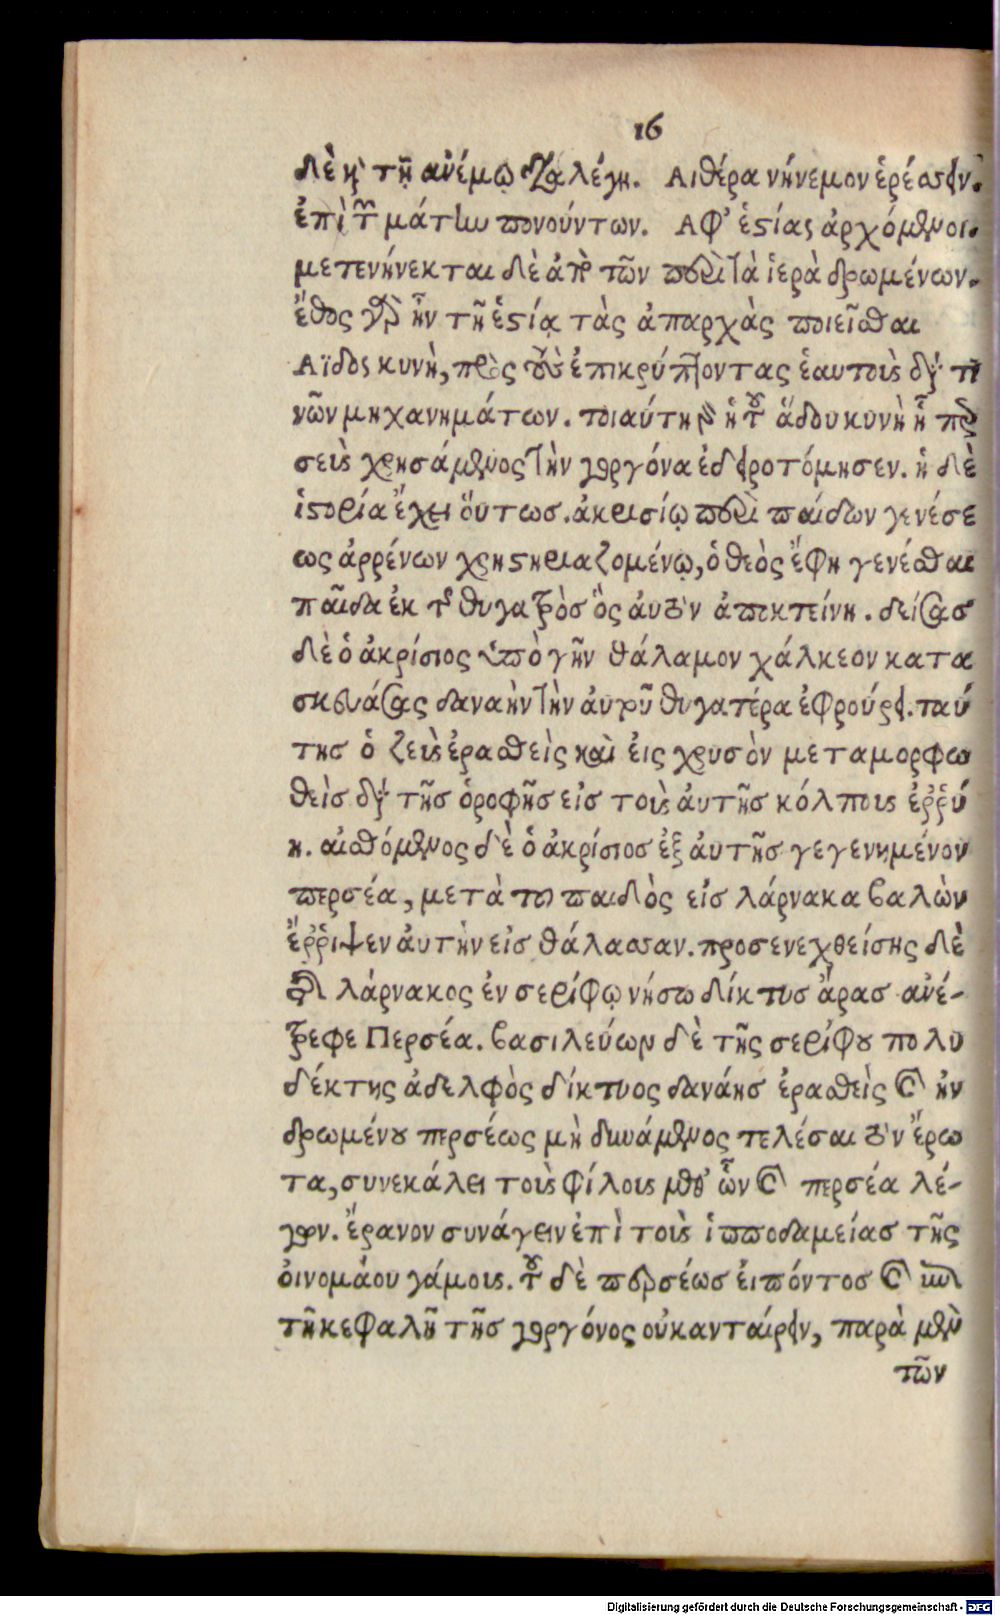 16
δὲ κ τῇ ἀνέμῳ διαλέγῃ. Αἰθέρα νήνεμον ἐρέσσειν.
ἐπὶ τῶν μάτην πονούντων. Ἀφ' ἑστίας ἀρχόμενοι.
μετενήνεκται δὲ ἀπὸ τῶν περὶ τὰ ἱερὰ δρωμένων.
ἔθος γὰρ ἦν τῇ ἑστίᾳ τὰς ἀπαρχὰς ποιεῖσθαι
Αϊδος κυνὴ, πρὸς τοὺς ἐπικρύπτοντας ἑαυτοὺς διά τι
νῶν μηχανημάτων. τοιαύτη γὰρ ἡ τοῦ ἅδου κυνὴ ᾗ περ
σεὺς χρησάμενος τὴν γοργόνα ἐδειροτόμησεν. ἡ δὲ
ἱστορία ἔχει ὅυτως. ἀκρισίῳ περὶ παίδων γενέσε
ως ἀρρένων χρηστηριαζομένῳ, ὁ θεὸς ἔφη γενέσθαι
παῖδα ἐκ τῆς θυγατρὸς ὅς ἀυτὸν ἀποκτείνῃ. δείσας
δὲ ὁ ἀκρίσιος ὑπὸ γῆν θάλαμον χάλκεον κατα
σκευάσας δαναὴν τὴν ἀυτοῦ θυγατέρα ἐφρούρει. ταύ
της ὁ ζεὺς ἐρασθεὶς καὶ εἰς χρυσὸν μεταμορφω
θεὶς διὰ τῆς ὀροφῆς εἰς τοὺς ἀυτῆς κόλπους ἐῤῥύ
η. αἰσθόμενος δὲ ὁ ἀκρίσιος ἐξ ἀυτῆς γεγενημένον
περσέα, μετὰ τοῦ παιδὸς εἰς λάρνακα βαλὼν
ἔῤῥιψεν ἀυτὴν εἰς θάλασσαν. προσενεχθείσης δὲ
τῆς λάρνακος ἐν σερίφῳ νήσῳ δίκτυς ἄρας ἀνέ-
τρεφε Περσέα. βασιλεύων δὲ τῆς σερίφου πολυ
δέκτης ἀδελφὸς δίκτυος δανάης ἐρασθεὶς καὶ ἠν
δρωμένου περσέως μὴ δυνάμενος τελέσαι τὸν ἔρω
τα, συνεκάλει τοὺς φίλους μεθ' ὧν καὶ περσέα λέ-
γων. ἔρανον συνάγειν ἐπὶ τοὺς ἱπποδαμείας τῆς
ὀινομάου γάμους. τοῦ δὲ περσέως ἐιπόντος καὶ ἐπὶ
τῇ κεφαλῇ τῆς γοργόνος οὐκ ανταίρειν, παρὰ μὲν
τῶν
Digitalisierung gefördert durch die Deutsche Forschungsgemeinschaft - DFG